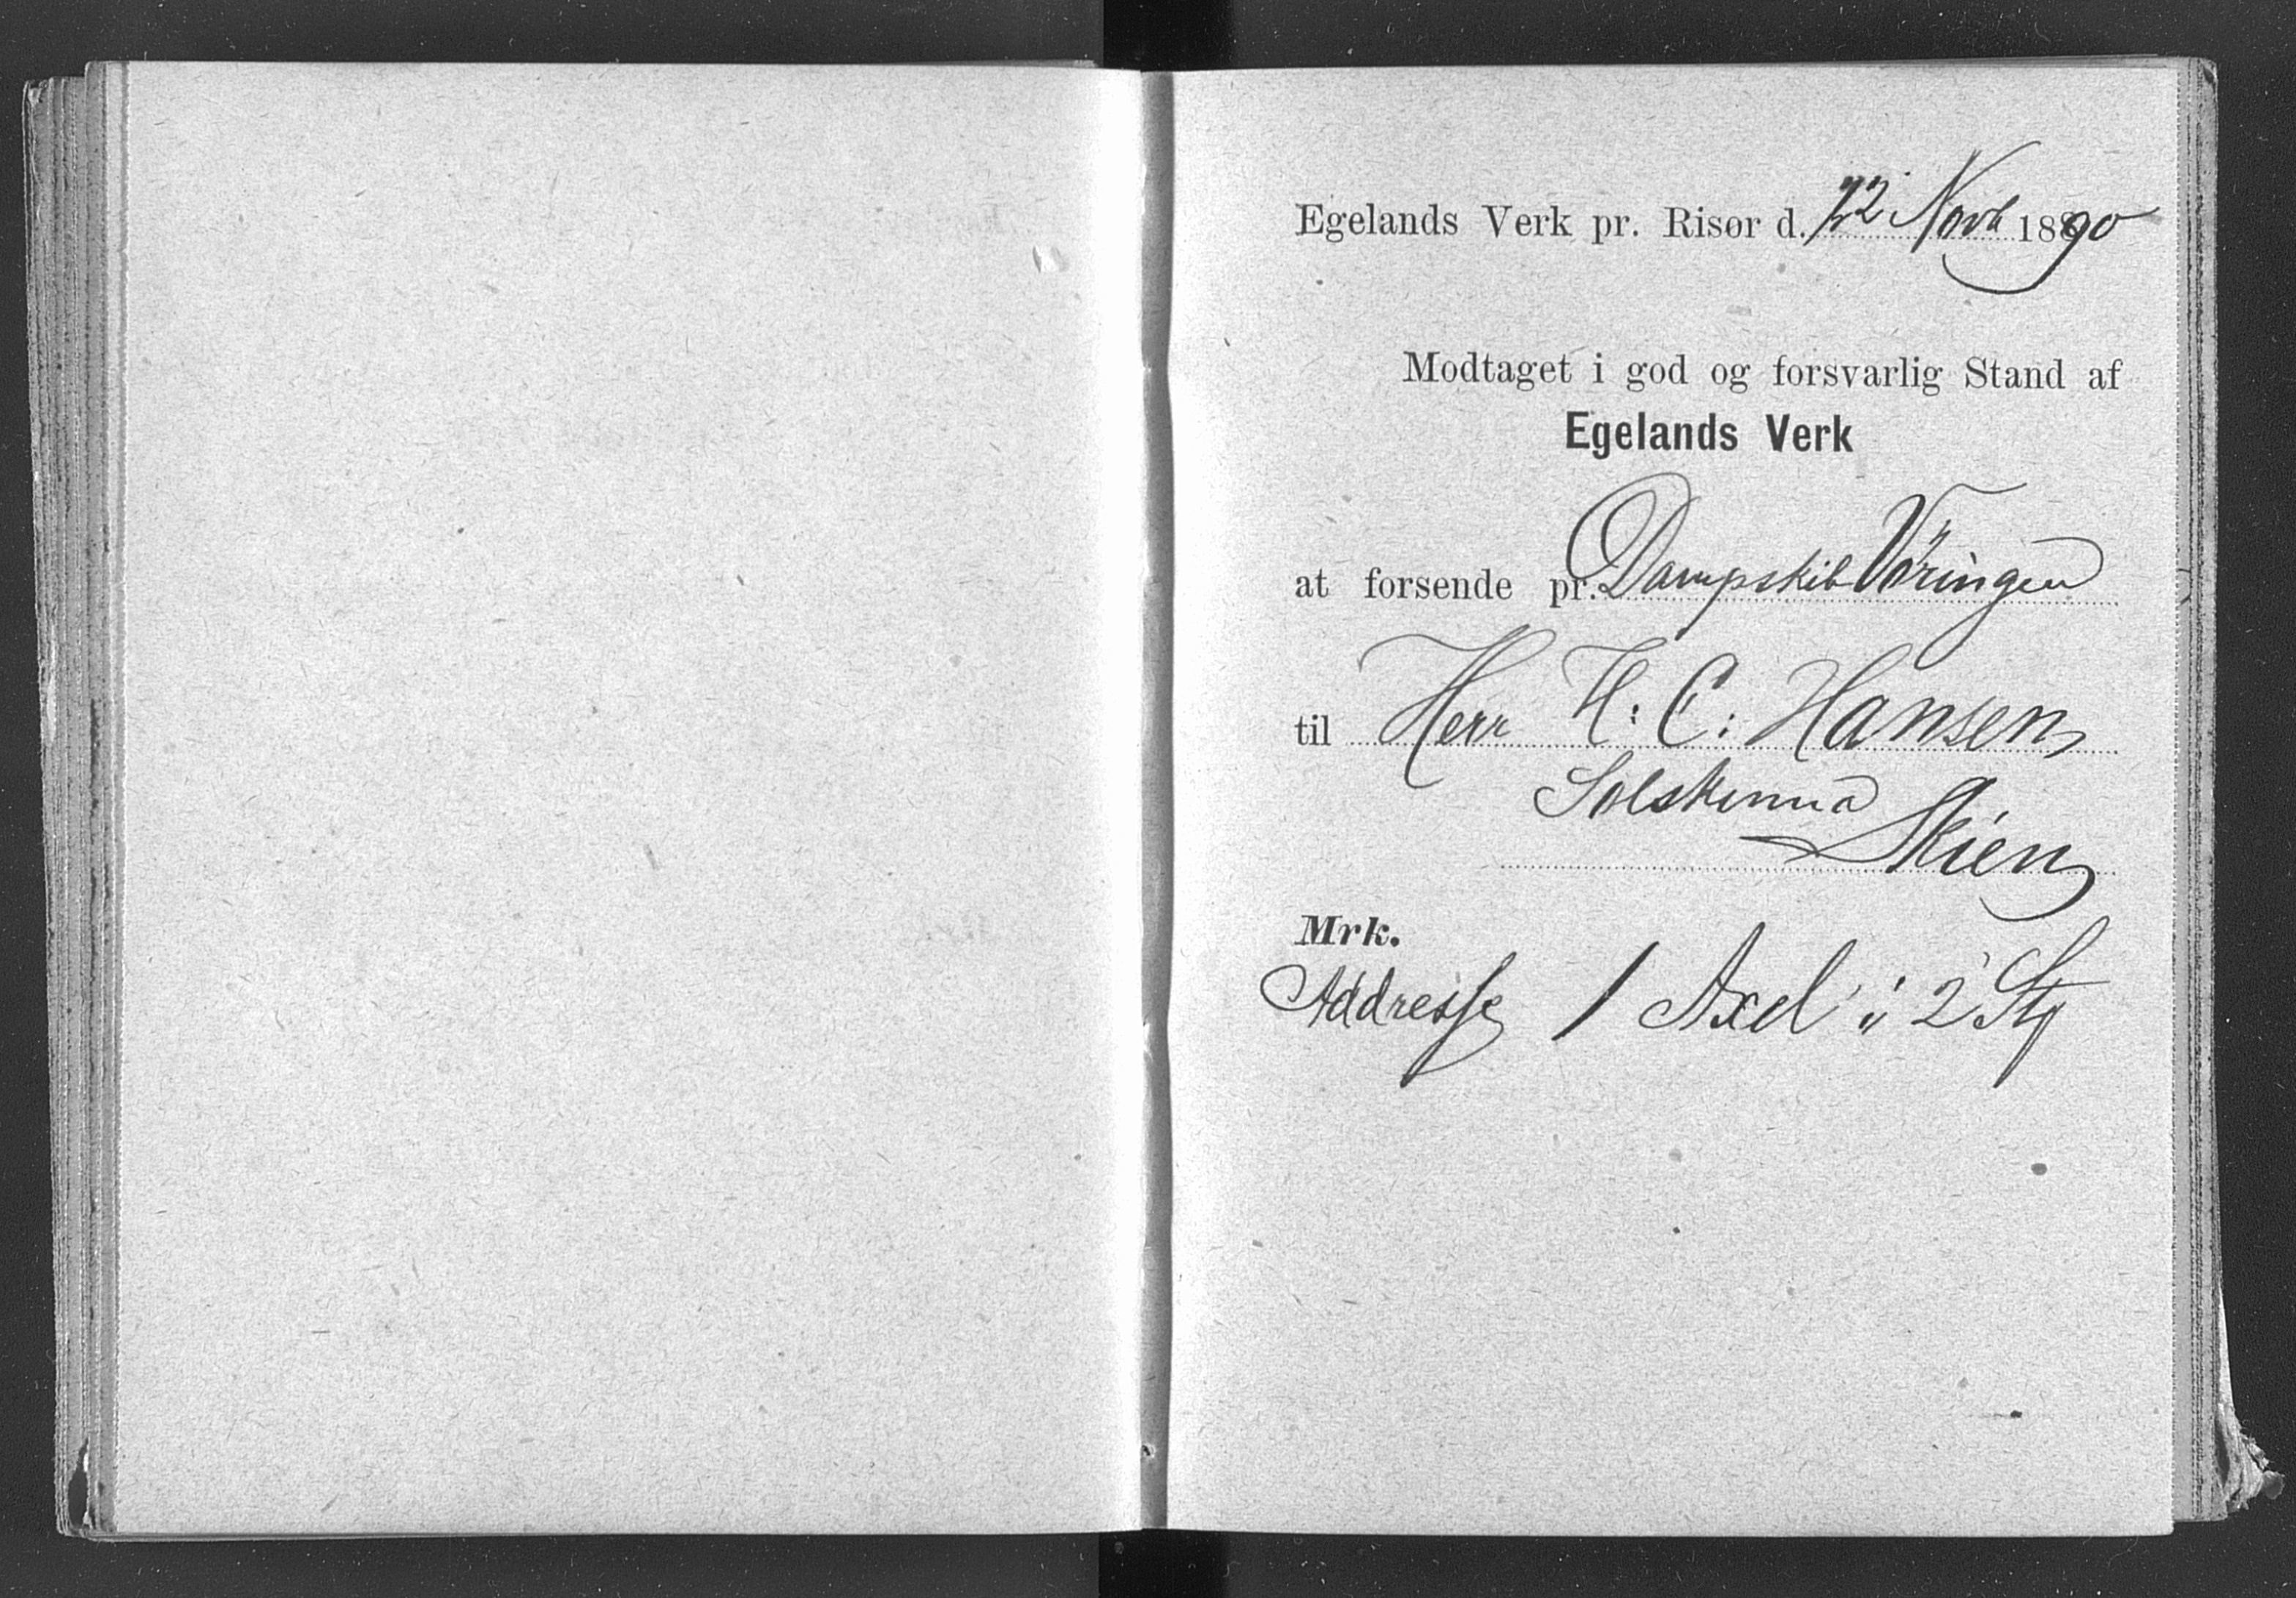 Egelands Verk pr. Risør d. 22 Novb 1890
Modtaget i god og forsvarlig Stand af
Egelands Verk
at forsende pr. Dampskib Vøringen
til Herr H: C: Hansen
Solskinna
Skien
Mrk.
Addresse 1 Axel i 2 Stp